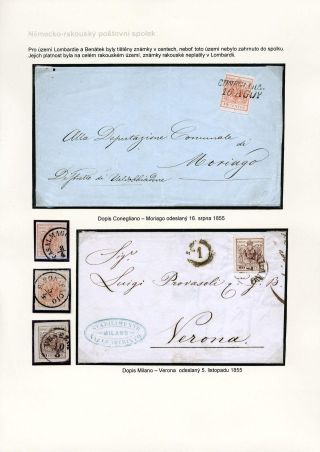 Německo-rakouský poštovní spolek
Pro území Lombardie a Benátek byly tištěny známky v centech, neboť toto území nebylo zahrnuto do spolku.
Jejich platnost byla na celém rakouském území, známky rakouské neplatily v Lombardii.
CONEGLIANO
16 AGO.
Alla Deputazione Comunale
di
Moriago
Distretto di Valdobbiadene
Dopis Conegliano – Moriago odeslaný 16. srpna 1855
1
Sig.r
Luigi Provasoli
Verona
STABILIMENTO
MILANO
Dopis Milano – Verona odeslaný 5. listopadu 1855